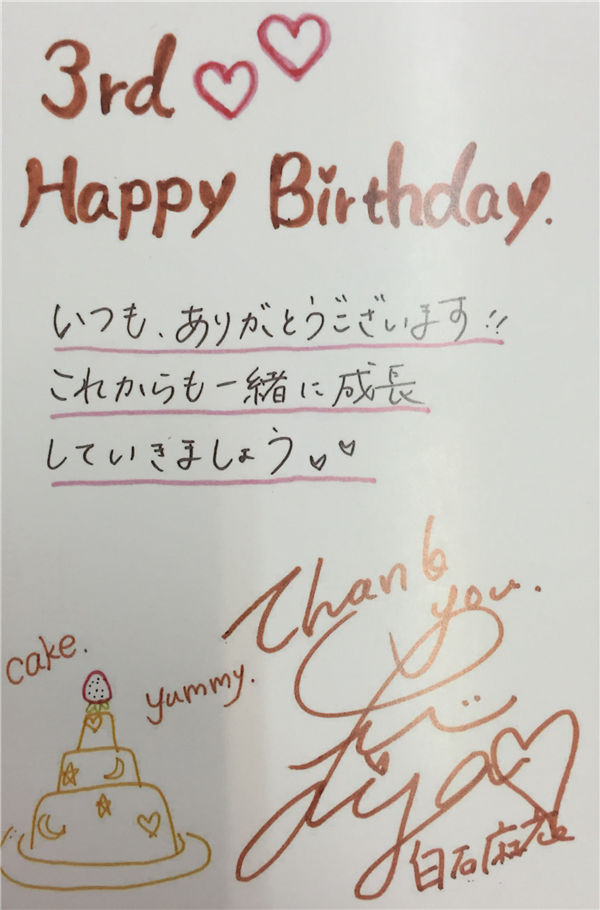 3rd
Happy Birthday.
いつも、ありがとうございます!!
これからも一緒に成長
していきましょう
Thank
you.
cake.
yummy.
白石麻衣